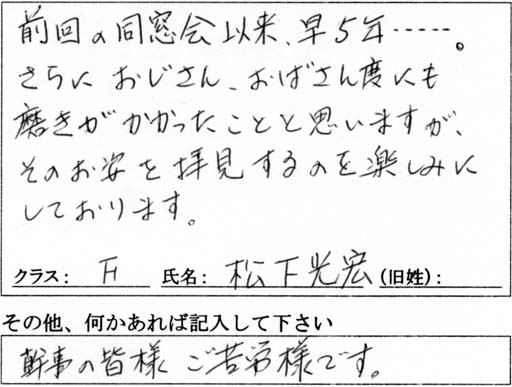 前回の同窓会以来、早5年……。
さらに おじさん、おばさん度にも
磨きがかかったことと思いますが、
そのお姿を拝見するのを楽しみに
しております。
クラス： F 氏名： 松下光宏 (旧姓)：
その他、何かあれば記入して下さい
幹事の皆様 ご苦労様です。